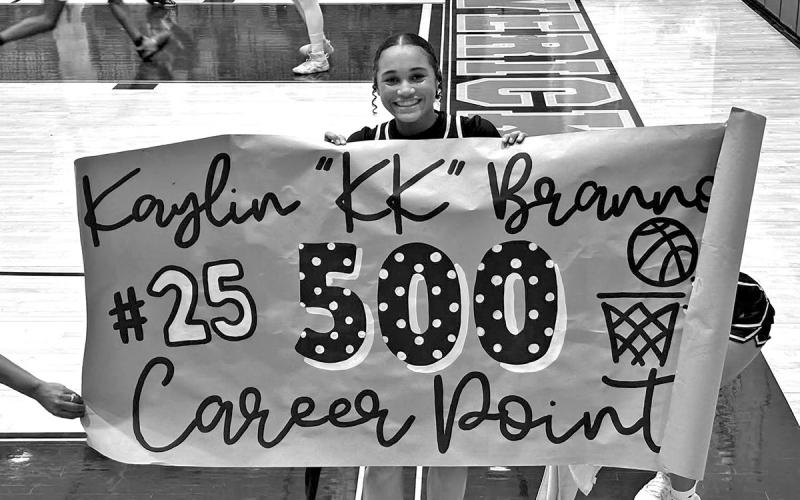 Kaylin "KK" Branno
#25 500
Career Point